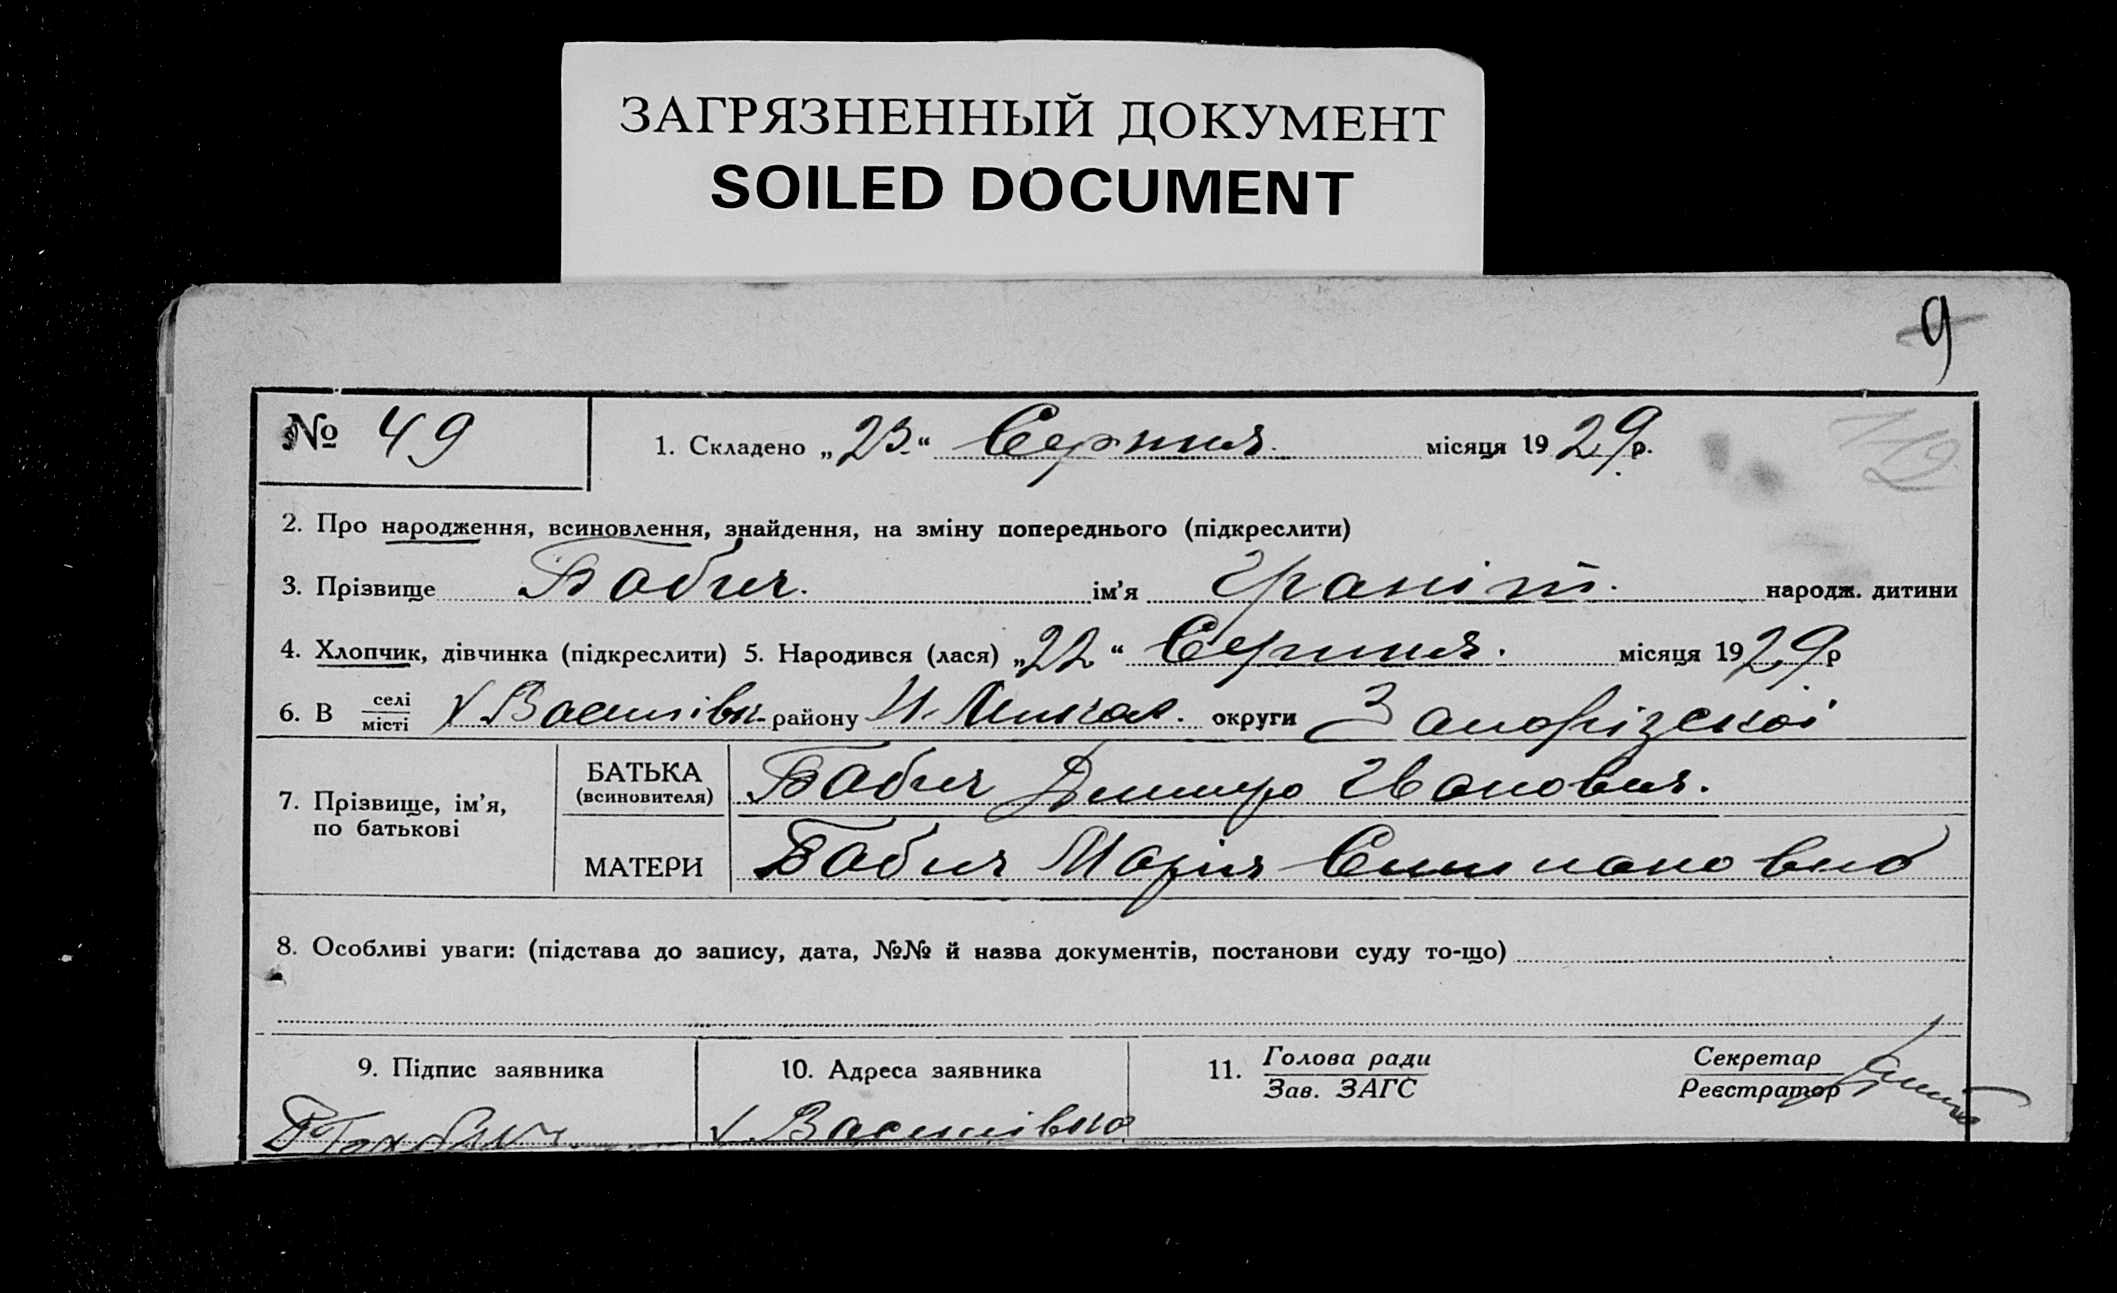 ЗАГРЯЗНЕННЫЙ ДОКУМЕНТ
SOILED DOCUMENT
9
№ 49
1. Складено „23“ Серпня місяця 1929 р.
2. Про народження, всиновлення, знайдення, на зміну попереднього (підкреслити)
3. Прізвище Бабич ім’я Граніт народж. дитини
4. Хлопчик, дівчинка (підкреслити) 5. Народився (лася) „22“ Серпня місяця 1929 р
6. В селі / місті Василівка району округи Запорізської
7. Прізвище, ім’я, по батькові
БАТЬКА (всиновителя) Бабич Дмитро Іванович.
МАТЕРИ Бабич Марія Степановна
8. Особливі уваги: (підстава до запису, дата, №№ й назва документів, постанови суду то-що)
9. Підпис заявника
10. Адреса заявника
11. Голова ради / Зав. ЗАГС
Секретар / Реєстратор
Василівка